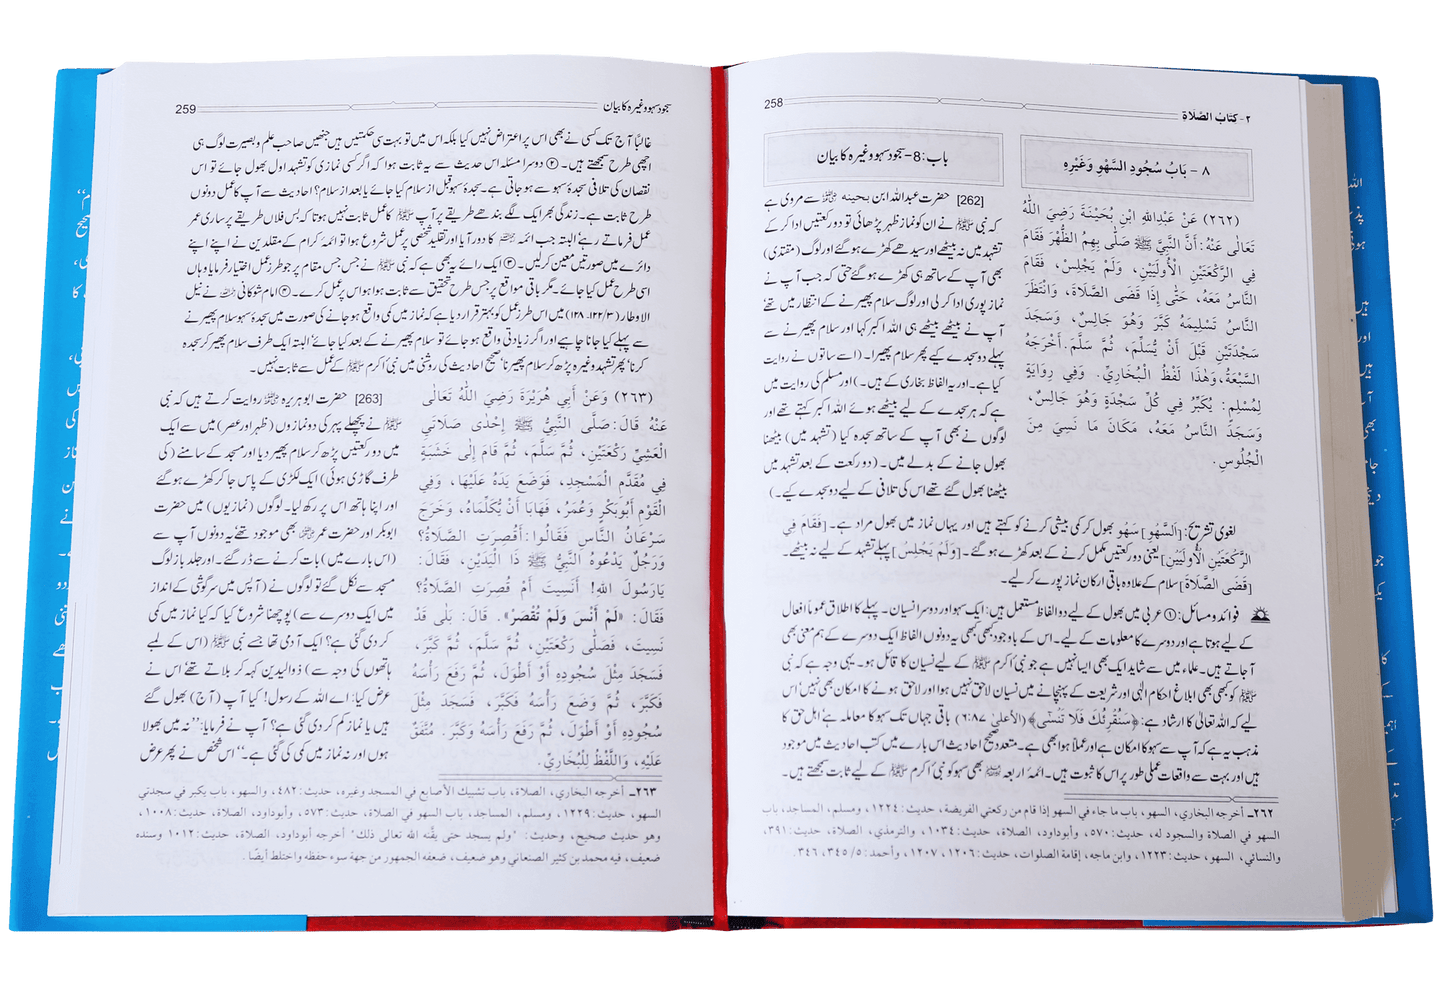 ٢- کتاب الصّلاة
258
٨ - بَابُ سُجُودِ السَّهْوِ وَغَيْرِهِ
(٢٦٢) عَنْ عَبْدِاللهِ ابْنِ بُحَيْنَةَ رَضِيَ اللهُ
تَعَالٰى عَنْهُ: أَنَّ النَّبِيَّ ﷺ صَلّٰى بِهِمُ الظُّهْرَ فَقَامَ
فِي الرَّكْعَتَيْنِ الْأُولَيَيْنِ، وَلَمْ يَجْلِسْ، فَقَامَ
النَّاسُ مَعَهُ، حَتّٰى إِذَا قَضَى الصَّلَاةَ، وَانْتَظَرَ
النَّاسُ تَسْلِيمَهُ كَبَّرَ وَهُوَ جَالِسٌ، وَسَجَدَ
سَجْدَتَيْنِ قَبْلَ أَنْ يُّسَلِّمَ، ثُمَّ سَلَّمَ. أَخْرَجَهُ
السَّبْعَةُ، وَهٰذَا لَفْظُ الْبُخَارِيِّ. وَفِي رِوَايَةٍ
لِمُسْلِمٍ: يُكَبِّرُ فِي كُلِّ سَجْدَةٍ وَهُوَ جَالِسٌ،
وَسَجَدَ النَّاسُ مَعَهُ، مَكَانَ مَا نَسِيَ مِنَ
الْجُلُوسِ.
باب:8-سجود سہو وغیرہ کا بیان
[262] حضرت عبداللہ ابن بحینہ ؓ سے مروی ہے
کہ نبی ﷺ نے ان کو نماز ظہر پڑھائی تو دو رکعتیں ادا کر کے
تشہد میں نہ بیٹھے اور سیدھے کھڑے ہو گئے اور لوگ (مقتدی)
بھی آپ کے ساتھ ہی کھڑے ہو گئے حتی کہ جب آپ نے
نماز پوری ادا کر لی اور لوگ سلام پھیرنے کے انتظار میں تھے
آپ نے بیٹھے بیٹھے ہی اللہ اکبر کہا اور سلام پھیرنے سے
پہلے دو سجدے کیے پھر سلام پھیرا۔ (اسے ساتوں نے روایت
کیا ہے۔ اور یہ الفاظ بخاری کے ہیں۔) اور مسلم کی روایت میں
ہے کہ ہر سجدے کے لیے بیٹھے ہوئے اللہ اکبر کہتے تھے اور
لوگوں نے بھی آپ کے ساتھ سجدہ کیا (تشہد میں) بیٹھنا
بھول جانے کے بدلے میں۔ (دو رکعت کے بعد تشہد میں
بیٹھنا بھول گئے تھے اس کی تلافی کے لیے دو سجدے کیے۔)
لغوی تشریح: [اَلسَّهْوِ] سَهْو بھول کر کمی بیشی کرنے کو کہتے ہیں اور یہاں نماز میں بھول مراد ہے۔ [فَقَامَ فِي
الرَّكْعَتَيْنِ الْأُولَيَيْنِ] یعنی دو رکعتیں مکمل کرنے کے بعد کھڑے ہو گئے۔ [وَلَمْ يَجْلِسْ] پہلے تشہد کے لیے نہ بیٹھے۔
[قَضَى الصَّلَاةَ] سلام کے علاوہ باقی ارکان نماز پورے کر لیے۔
فوائد و مسائل: ① عربی میں بھول کے لیے دو الفاظ مستعمل ہیں: ایک سہو اور دوسرا نسیان۔ پہلے کا اطلاق عموماً افعال
کے لیے ہوتا ہے اور دوسرے کا معلومات کے لیے۔ اس کے باوجود کبھی کبھی یہ دونوں الفاظ ایک دوسرے کے ہم معنی بھی
آ جاتے ہیں۔ علماء میں سے شاید ایک بھی ایسا نہیں ہے جو نبی ٔ اکرم ﷺ کے لیے نسیان کا قائل ہو۔ یہی وجہ ہے کہ نبی
ﷺ کو کبھی بھی ابلاغ احکام الٰہی اور شریعت کے پہنچانے میں نسیان لاحق نہیں ہوا اور لاحق ہونے کا امکان بھی نہیں اس
لیے کہ اللہ تعالیٰ کا ارشاد ہے: ﴿سَنُقْرِئُكَ فَلَا تَنْسٰٓى﴾ (الأعلیٰ ٦:٨٧) باقی جہاں تک سہو کا معاملہ ہے اہل حق کا
مذہب یہ ہے کہ آپ سے سہو کا امکان ہے اور عملاً ہوا بھی ہے۔ متعدد صحیح احادیث اس بارے میں کتب احادیث میں موجود
ہیں اور بہت سے واقعات عملی طور پر اس کا ثبوت ہیں۔ ائمۂ اربعہ بھی سہو کو نبی ٔ اکرم ﷺ کے لیے ثابت سمجھتے ہیں۔
٢٦٢ـ أخرجه البخاري، السهو، باب ما جاء في السهو إذا قام من ركعتي الفريضة، حديث:١٢٢٤، ومسلم، المساجد، باب
السهو في الصلاة والسجود له، حديث:٥٧٠، وأبوداود، الصلاة، حديث:١٠٣٤، والترمذي، الصلاة، حديث:٣٩١،
والنسائي، السهو، حديث:١٢٢٣، وابن ماجه، إقامة الصلوات، حديث:١٢٠٦، ١٢٠٧، وأحمد:٥/ ٣٤٥، ٣٤٦.
سجود سہو وغیرہ کا بیان
259
غالباً آج تک کسی نے بھی اس پر اعتراض نہیں کیا بلکہ اس میں تو بہت سی حکمتیں ہیں جنھیں صاحب علم و بصیرت لوگ ہی
اچھی طرح سمجھتے ہیں۔ ② دوسرا مسئلہ اس حدیث سے یہ ثابت ہوا کہ اگر کسی نمازی کو تشہد اول بھول جائے تو اس
نقصان کی تلافی سجدۂ سہو سے ہو جاتی ہے۔ سجدۂ سہو قبل از سلام کیا جائے یا بعد از سلام؟ احادیث سے آپ کا عمل دونوں
طرح ثابت ہے۔ زندگی بھر ایک لگے بندھے طریقے پر آپ ﷺ کا عمل ثابت نہیں ہوتا کہ بس فلاں طریقے پر ساری عمر
عمل فرماتے رہے البتہ جب ائمہ کا دور آیا اور تقلید شخصی پر عمل شروع ہوا تو ائمۂ کرام کے مقلدین نے اپنے اپنے
دائرے میں صورتیں معین کر لیں۔ ③ ایک رائے یہ بھی ہے کہ نبی ﷺ نے جس جس مقام پر جو طرز عمل اختیار فرمایا وہاں
اسی طرح عمل کیا جائے۔ مگر باقی مواقع پر جس طرح تحقیق سے ثابت ہوا ہو اس پر عمل کرے۔ ④ امام شوکانی نے نیل
الاوطار (٣/١٢٢۔١٢٨) میں اس طرز عمل کو بہتر قرار دیا ہے کہ نماز میں کمی واقع ہو جانے کی صورت میں سجدۂ سہو سلام پھیرنے
سے پہلے کیا جانا چاہیے اور اگر زیادتی واقع ہو جائے تو سلام پھیرنے کے بعد کیا جائے البتہ ایک طرف سلام پھیر کر سجدہ
کرنا پھر تشہد وغیرہ پڑھ کر سلام پھیرنا صحیح احادیث کی روشنی میں نبی ٔ اکرم ﷺ کے عمل سے ثابت نہیں۔
(٢٦٣) وَعَنْ أَبِي هُرَيْرَةَ رَضِيَ اللهُ تَعَالٰى
عَنْهُ قَالَ: صَلَّى النَّبِيُّ ﷺ إِحْدٰى صَلَاتَيِ
الْعَشِيِّ رَكْعَتَيْنِ، ثُمَّ سَلَّمَ، ثُمَّ قَامَ إِلٰى خَشَبَةٍ
فِي مُقَدَّمِ الْمَسْجِدِ، فَوَضَعَ يَدَهُ عَلَيْهَا، وَفِي
الْقَوْمِ أَبُوبَكْرٍ وَعُمَرُ، فَهَابَا أَنْ يُّكَلِّمَاهُ، وَخَرَجَ
سَرْعَانُ النَّاسِ فَقَالُوا: أَقُصِرَتِ الصَّلَاةُ؟
وَرَجُلٌ يَدْعُوهُ النَّبِيُّ ﷺ ذَا الْيَدَيْنِ، فَقَالَ:
يَارَسُولَ اللهِ! أَنَسِيتَ أَمْ قُصِرَتِ الصَّلَاةُ؟
فَقَالَ: «لَمْ أَنْسَ وَلَمْ تُقْصَرْ». قَالَ: بَلٰى قَدْ
نَسِيتَ، فَصَلّٰى رَكْعَتَيْنِ، ثُمَّ سَلَّمَ، ثُمَّ كَبَّرَ،
فَسَجَدَ مِثْلَ سُجُودِهِ أَوْ أَطْوَلَ، ثُمَّ رَفَعَ رَأْسَهُ
فَكَبَّرَ، ثُمَّ وَضَعَ رَأْسَهُ فَكَبَّرَ، فَسَجَدَ مِثْلَ
سُجُودِهِ أَوْ أَطْوَلَ، ثُمَّ رَفَعَ رَأْسَهُ وَكَبَّرَ. مُتَّفَقٌ
عَلَيْهِ، وَاللَّفْظُ لِلْبُخَارِيِّ.
[263] حضرت ابو ہریرہ ؓ روایت کرتے ہیں کہ نبی
ﷺ نے پچھلے پہر کی دو نمازوں (ظہر اور عصر) میں سے ایک
میں دو رکعتیں پڑھ کر سلام پھیر دیا اور مسجد کے سامنے (کی
طرف گاڑی ہوئی) ایک لکڑی کے پاس جا کر کھڑے ہو گئے
اور اپنا ہاتھ اس پر رکھ لیا۔ لوگوں (نمازیوں) میں حضرت
ابوبکر اور حضرت عمر ؓ بھی موجود تھے یہ دونوں آپ سے
(اس بارے میں) بات کرنے سے ڈر گئے۔ اور جلد باز لوگ
مسجد سے نکل گئے تو لوگوں نے (آپس میں سرگوشی کے انداز
میں ایک دوسرے سے) پوچھنا شروع کیا کہ کیا نماز میں کمی
کر دی گئی ہے؟ ایک آدمی تھا جسے نبی ﷺ (اس کے لمبے
ہاتھوں کی وجہ سے) ذوالیدین کہہ کر بلاتے تھے اس نے
عرض کیا: اے اللہ کے رسول! کیا آپ (آج) بھول گئے
ہیں یا نماز کم کر دی گئی ہے؟ آپ نے فرمایا: ’’نہ میں بھولا
ہوں اور نہ نماز میں کمی کی گئی ہے۔‘‘ اس شخص نے پھر عرض
٢٦٣ـ أخرجه البخاري، الصلاة، باب تشبيك الأصابع في المسجد وغيره، حديث:٤٨٢، والسهو، باب يكبر في سجدتي
السهو، حديث:١٢٢٩، ومسلم، المساجد، باب السهو في الصلاة، حديث:٥٧٣، وأبوداود، الصلاة، حديث:١٠٠٨،
وهو حديث صحيح، وحديث: "ولم يسجد حتى يقّنه الله تعالى ذلك" أخرجه أبوداود، الصلاة، حديث:١٠١٢ وسنده
ضعيف، فيه محمد بن كثير الصنعاني وهو ضعيف، ضعفه الجمهور من جهة سوء حفظه واختلط أيضًا.